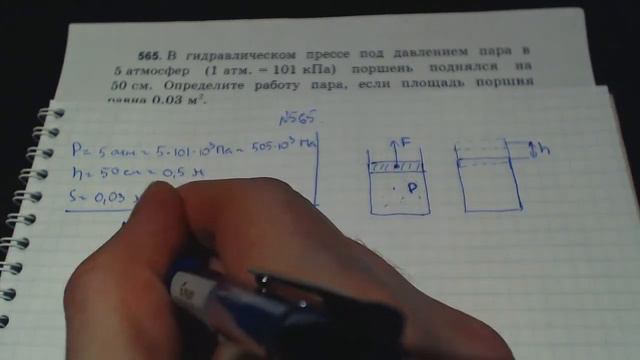 565. В гидравлическом прессе под давлением пара в
5 атмосфер (1 атм. = 101 кПа) поршень поднялся на
50 см. Определите работу пара, если площадь поршня
равна 0.03 м².
№565.
P = 5 атм = 5·101·10³ Па = 505·10³ Па
h = 50 см = 0,5 м
S = 0,03
F
P
h